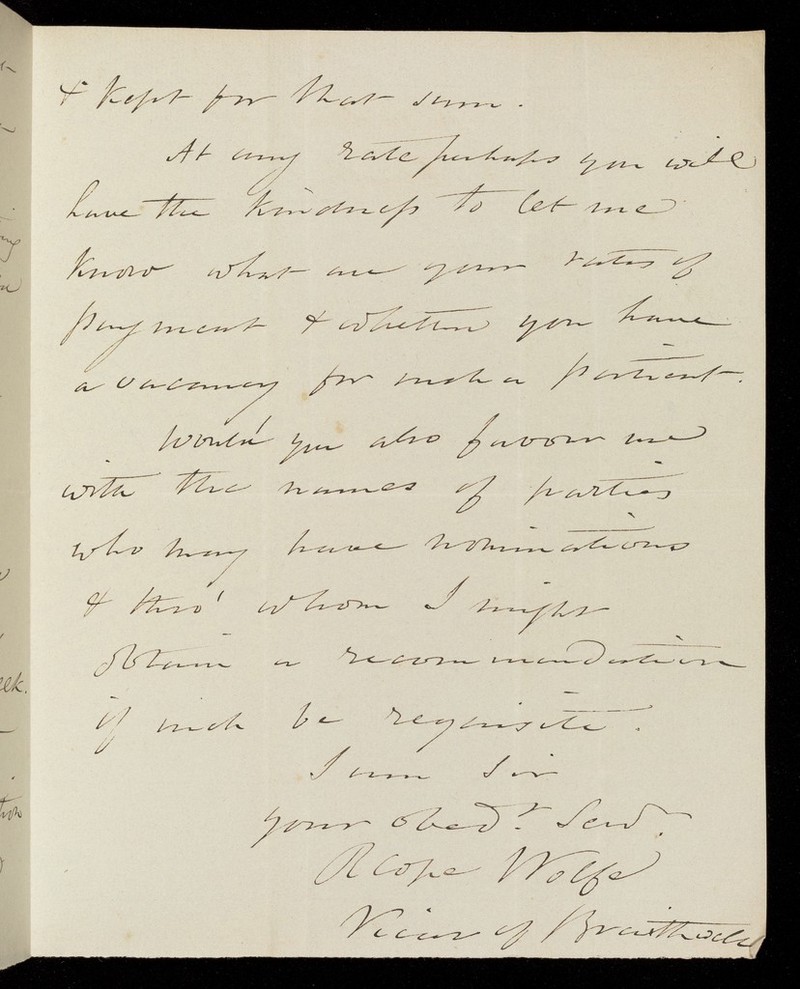 & kept for that sum.
At any rate perhaps you will
have the kindness to let me
know what are your rates of
payment & whether you have
a vacancy for such a patient.
Would you also favour me
with the names of parties
who may have nominations
& thro' whom I might
obtain a recommendation
if such be requisite.
I am Sir
your obedt. Servt.
R Cope Wolfe
Vicar of Braithwell